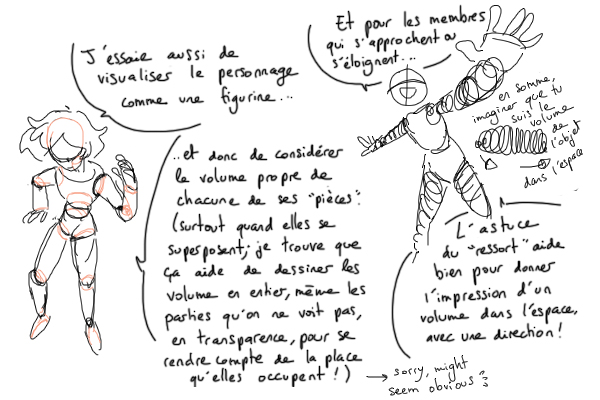 J'essaie aussi de
visualiser le personnage
comme une figurine...
..et donc de considérer
le volume propre de
chacune de ses "pièces".
(surtout quand elles se
superposent; je trouve que
ça aide de dessiner les
volume en entier, même les
parties qu'on ne voit pas,
en transparence, pour se
rendre compte de la place
qu'elles occupent!)
→ sorry, might
seem obvious
Et pour les membres
qui s'approchent ou
s'éloignent...
en somme,
imaginer que tu
suis le
volume
de
l'objet
dans l'espace
L'astuce
du "ressort" aide
bien pour donner
l'impression d'un
volume dans l'espace,
avec une direction!